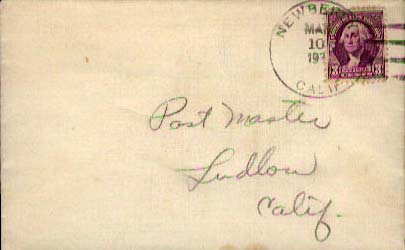 NEWBER
MAR
10
CALIF
3 3
Post Master
Ludlow
Calif.